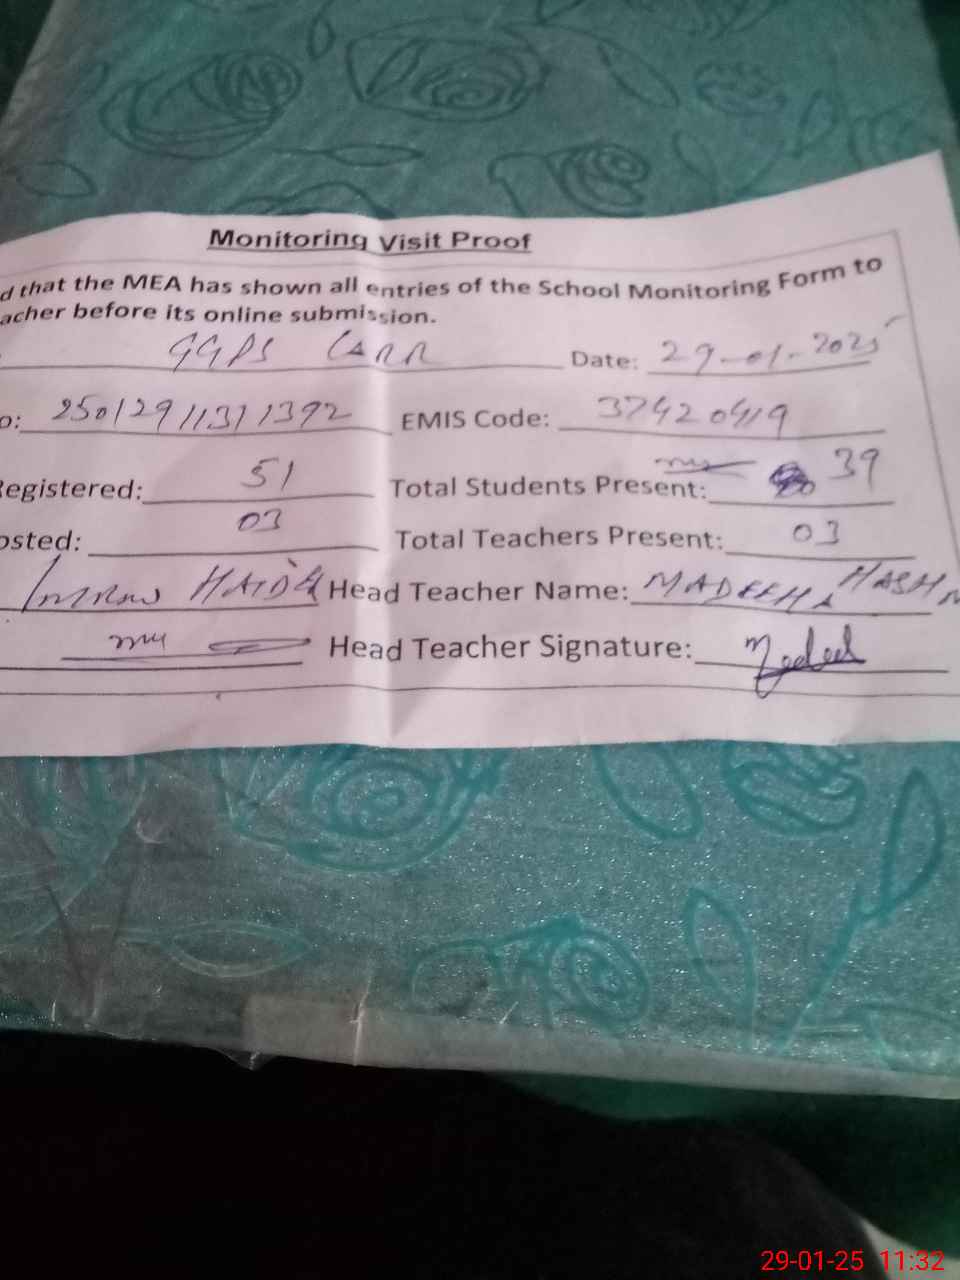 Monitoring Visit Proof
d that the MEA has shown all entries of the School Monitoring Form to
acher before its online submission.
GGPS CARR Date: 29-01-2025
o: 250129113711392 EMIS Code: 37420419
Registered: 51 Total Students Present: 39
osted: 03 Total Teachers Present: 03
Imran HAIDER Head Teacher Name: MADEEHA HASHM
Head Teacher Signature:
29-01-25 11:32